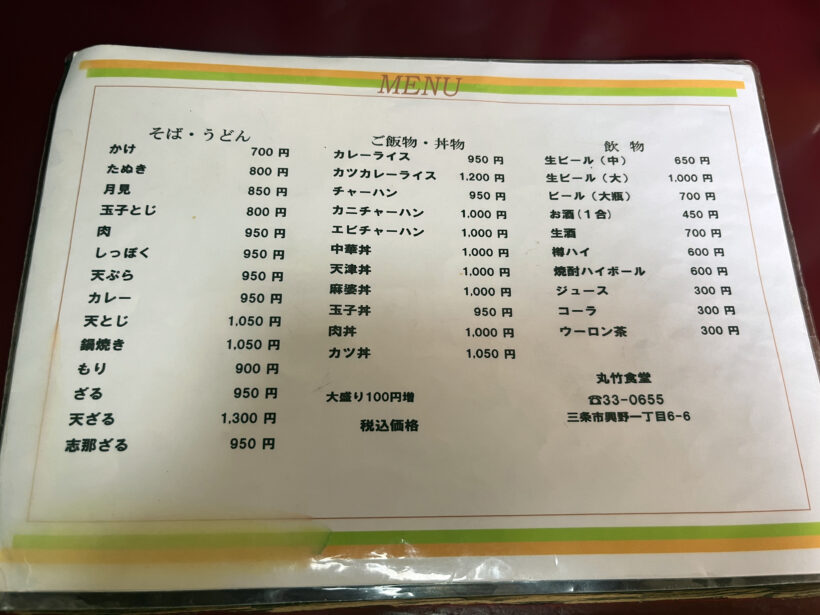 MENU
そば・うどん
かけ 700 円
たぬき 800 円
月見 850 円
玉子とじ 800 円
肉 950 円
しっぽく 950 円
天ぷら 950 円
カレー 950 円
天とじ 1,050 円
鍋焼き 1,050 円
もり 900 円
ざる 950 円
天ざる 1,300 円
志那ざる 950 円
ご飯物・丼物
カレーライス 950 円
カツカレーライス 1.200 円
チャーハン 950 円
カニチャーハン 1,000 円
エビチャーハン 1,000 円
中華丼 1,000 円
天津丼 1,000 円
麻婆丼 1,000 円
玉子丼 950 円
肉丼 1,000 円
カツ丼 1,050 円
大盛り100円増
税込価格
飲 物
生ビール(中) 650 円
生ビール(大) 1,000 円
ビール(大瓶) 700 円
お酒(1合) 450 円
生酒 700 円
樽ハイ 600 円
焼酎ハイボール 600 円
ジュース 300 円
コーラ 300 円
ウーロン茶 300 円
丸竹食堂
☎33-0655
三条市興野一丁目6-6